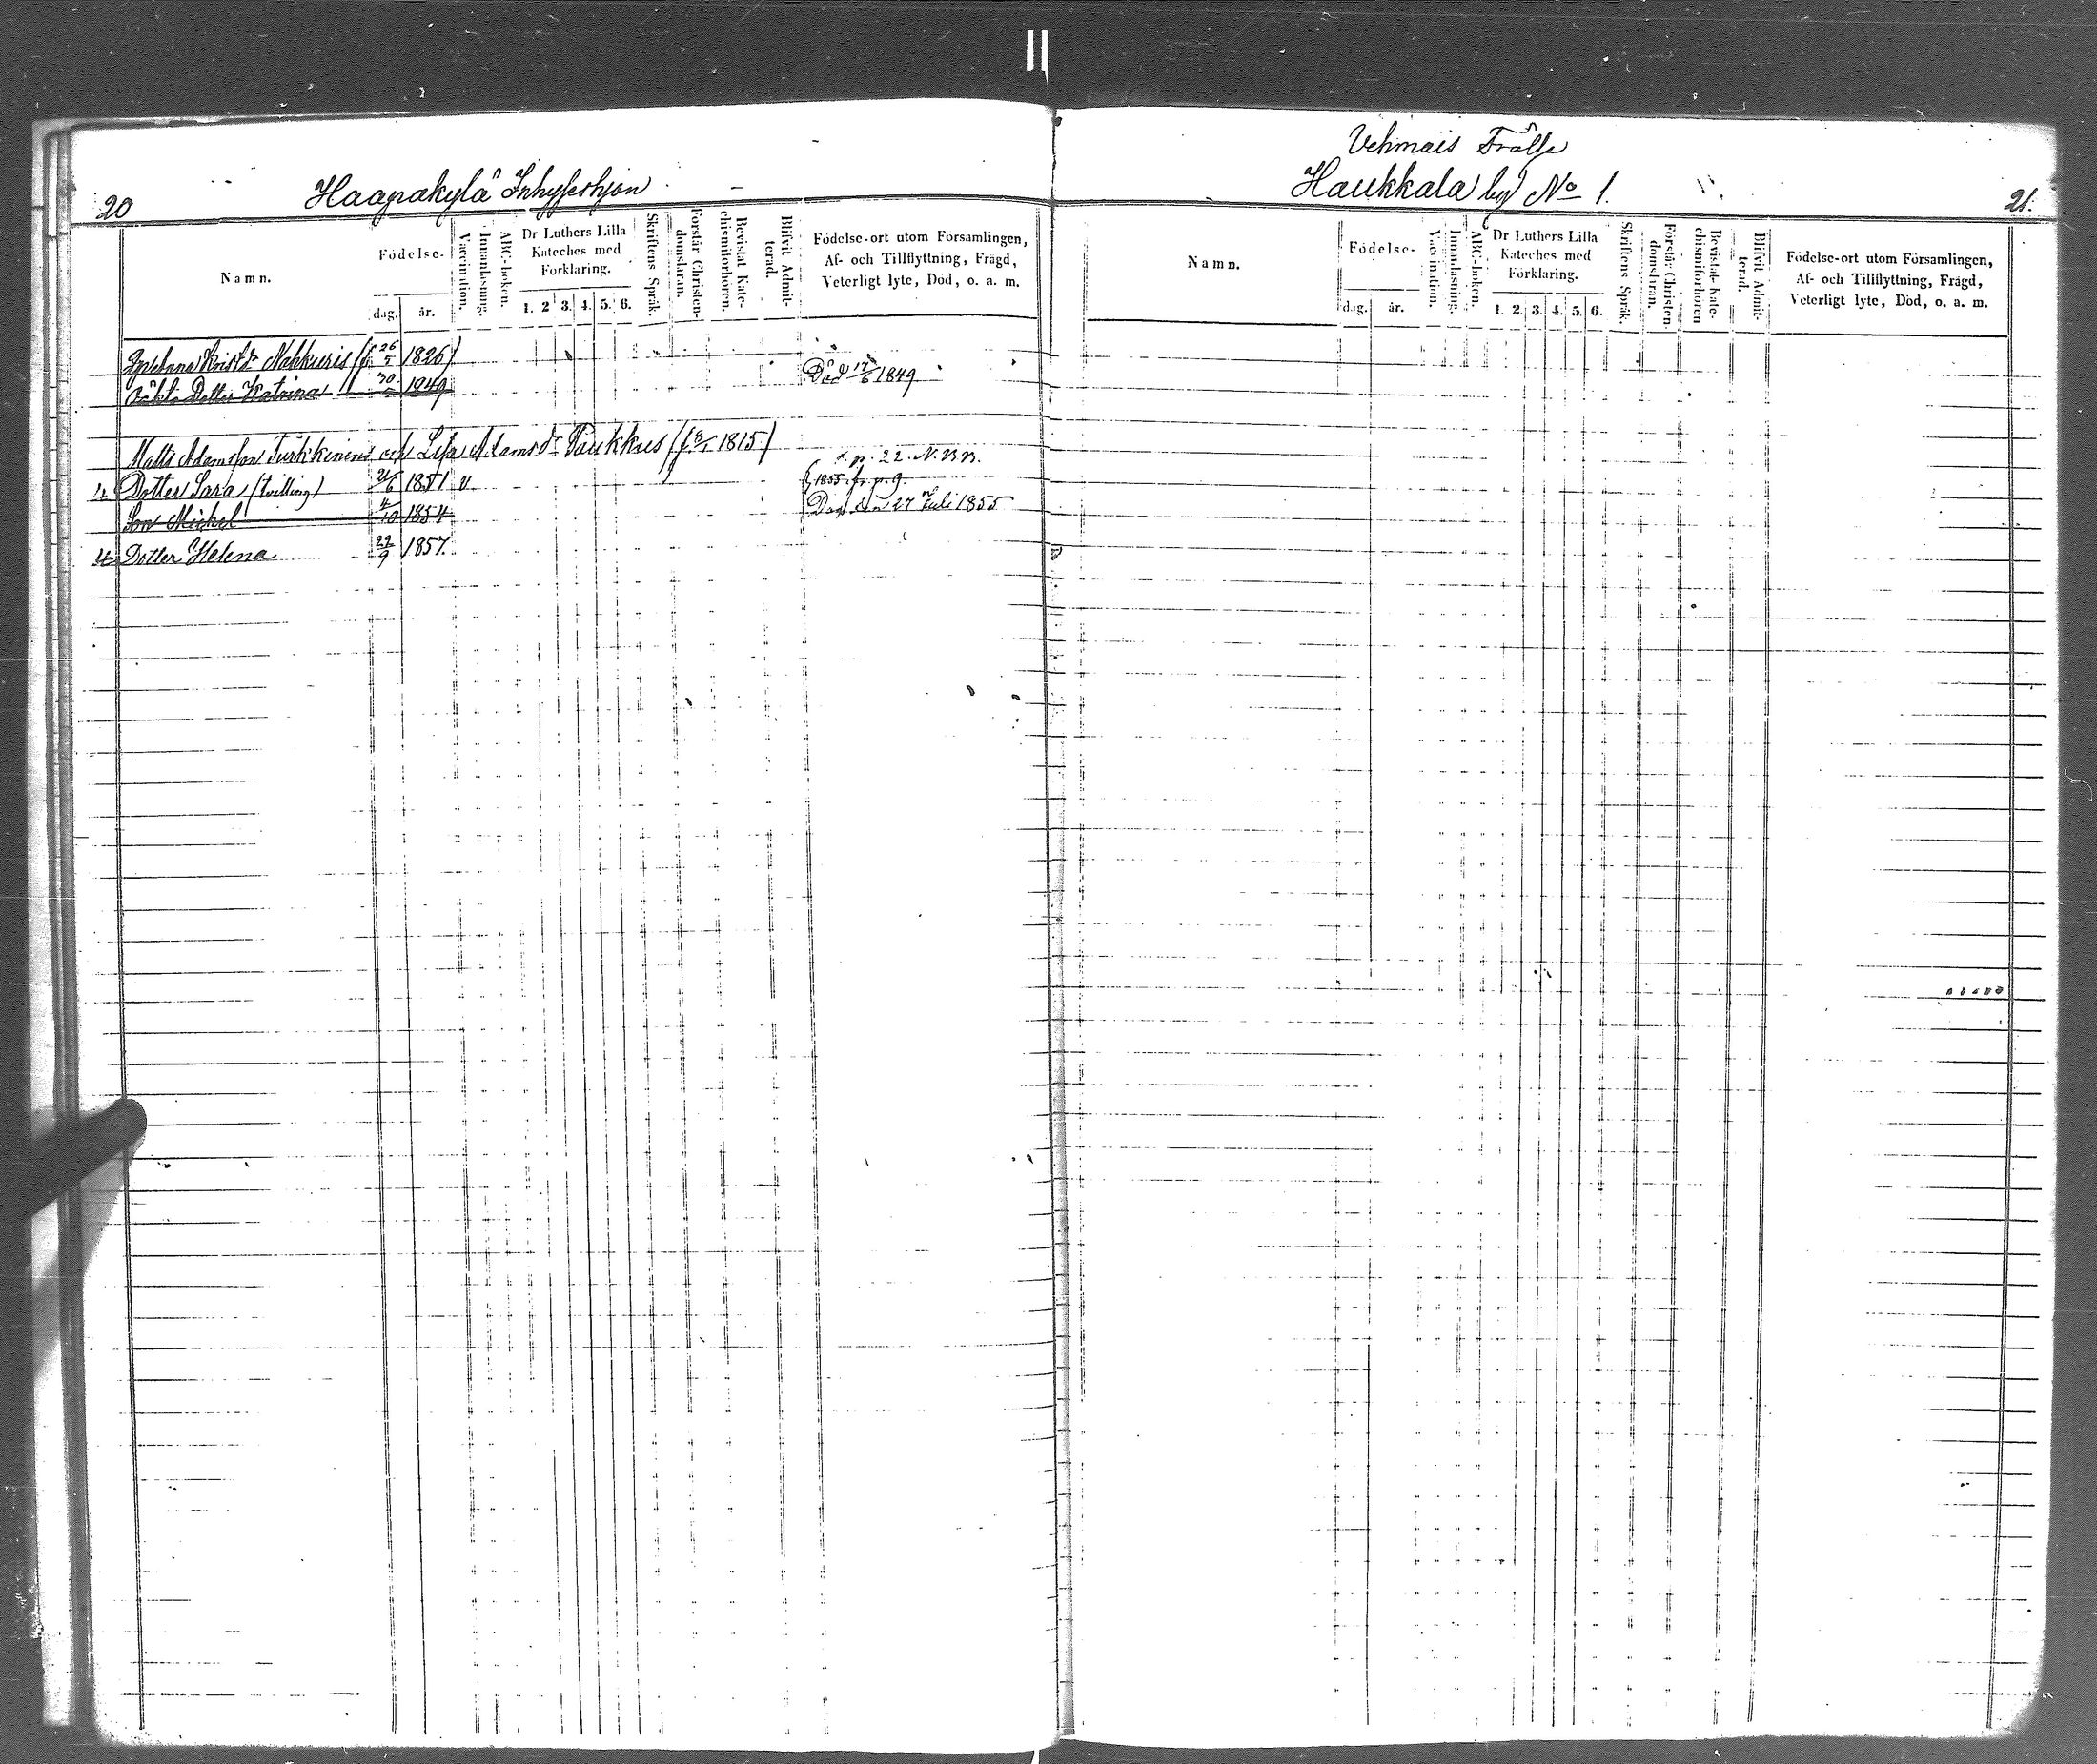 20
Haapakylä Inhyseshjon
Namn.
Födelse-
dag.
år.
Vaccination.
Innanläsning.
ABC-boken.
Dr Luthers Lilla
Kateches med
Förklaring.
1. 2 3. 4. 5. 6.
Skriftens Språk.
Förstår Christen-
domsläran.
Bevistat Kate-
chismiförhören.
Blifvit Admit-
terad.
Födelse-ort utom Församlingen,
Af- och Tillflyttning, Frägd,
Veterligt lyte, Död, o. a. m.
Anna Krist dr Nahkuris (f. 26 1826)
Dotter Katrina 30 1849 Död 17/6 1849
Matts Adamsson Turkkinens och Lisa Adamsdr Paukkus (f. 1815)
p. 22. N. B B.
Dotter Sara (tvilling) 2/6 1851 v 1855 fr. p. 9.
Son Michel 4/10 1854 Död den 27 Juli 1855
Dotter Helena 22/9 1857.
Vehmais Frälse
Haukkala by No 1.
21.
Namn.
Födelse-
dag.
år.
Vaccination.
Innanläsning.
ABC-boken.
Dr Luthers Lilla
Kateches med
Förklaring.
1. 2. 3. 4. 5. 6.
Skriftens Språk.
Förstår Christen-
domsläran.
Bevistat Kate-
chismiförhören
Blifvit Admit-
terad.
Födelse-ort utom Församlingen,
Af- och Tillflyttning, Frägd,
Veterligt lyte, Död, o. a. m.